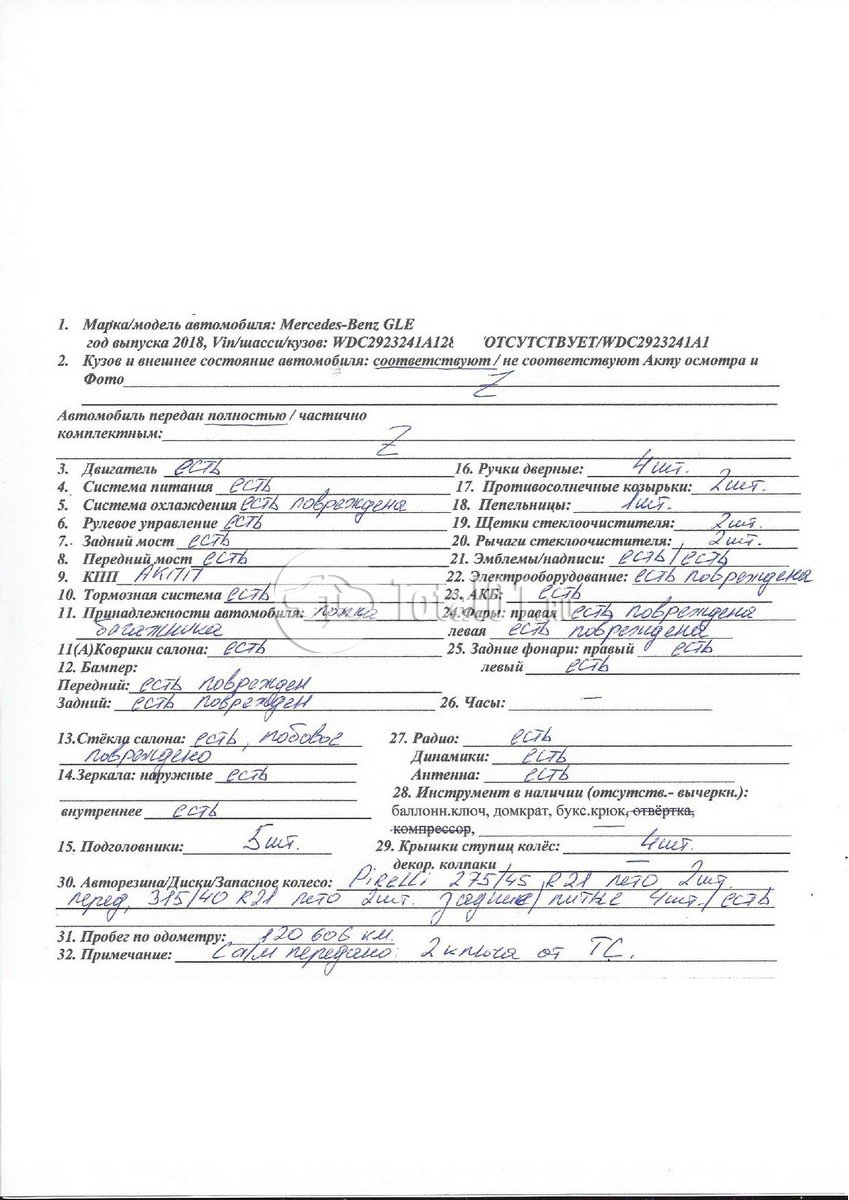 1. Марка/модель автомобиля: Mercedes-Benz GLE
год выпуска 2018, Vin/шасси/кузов: WDC2923241A128 /ОТСУТСТВУЕТ/WDC2923241A1
2. Кузов и внешнее состояние автомобиля: соответствуют / не соответствуют Акту осмотра и
Фото Z
Автомобиль передан полностью / частично
комплектным: Z
3. Двигатель есть
4. Система питания есть
5. Система охлаждения есть повреждена
6. Рулевое управление есть
7. Задний мост есть
8. Передний мост есть
9. КПП АКПП
10. Тормозная система есть
11. Принадлежности автомобиля: полка
багажника
11(А)Коврики салона: есть
12. Бампер:
Передний: есть поврежден
Задний: есть поврежден
16. Ручки дверные: 4 шт.
17. Противосолнечные козырьки: 2шт.
18. Пепельницы: 1шт.
19. Щетки стеклоочистителя: 2шт.
20. Рычаги стеклоочистителя: 2шт.
21. Эмблемы/надписи: есть/есть
22. Электрооборудование: есть повреждена
23. АКБ: есть
24.Фары: правая есть повреждена
левая есть повреждена
25. Задние фонари: правый есть
левый есть
26. Часы: —
13.Стёкла салона: есть, лобовое
повреждено
14.Зеркала: наружные есть
внутреннее есть
15. Подголовники: 5шт.
27. Радио: есть
Динамики: есть
Антенна: есть
28. Инструмент в наличии (отсутств.- вычеркн.):
баллонн.ключ, домкрат, букс.крюк, отвёртка,
компрессор, —
29. Крышки ступиц колёс: 4шт.
декор. колпаки —
30. Авторезина/Диски/Запасное колесо: Pirelli 275/45 R21 лето 2шт.
перед, 315/40 R21 лето 2шт. задние/литые 4шт./есть
31. Пробег по одометру: 120 606 км.
32. Примечание: Са/м передано: 2 ключа от ТС.